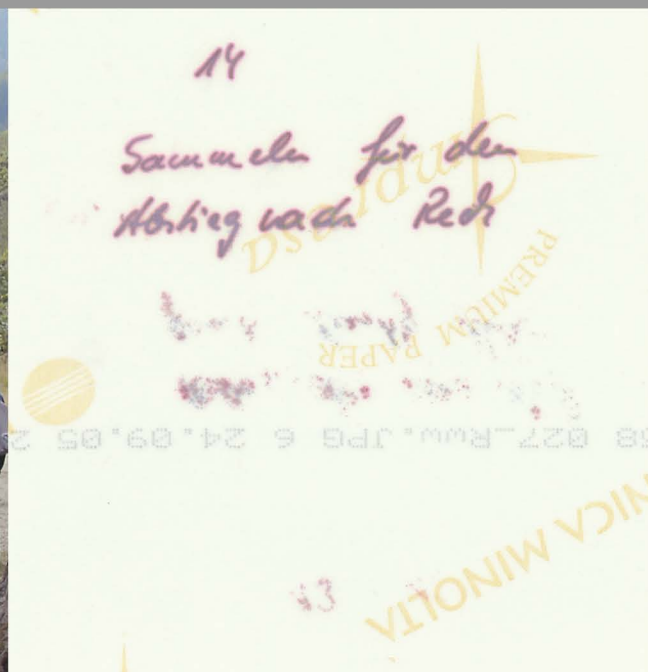 14
Sammeln für den
Abstieg nach Rech
Impressa
PREMIUM PAPER
68 027_Rww.JPG 6 24.09.05 2
NICA MINOLTA
13